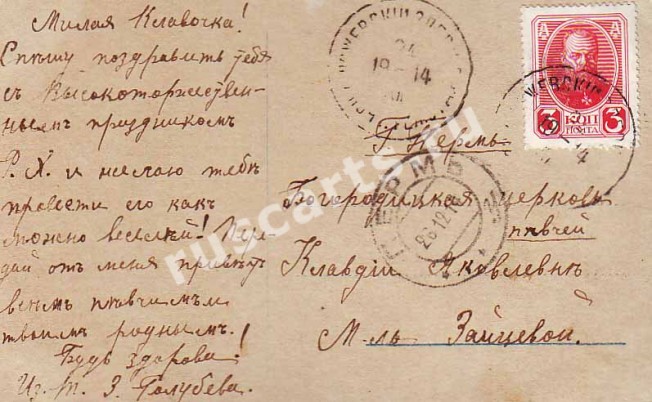 Милая Клавочка!
Спѣшу поздравить тебя
съ Высокоторжествен-
нымъ праздникомъ
Р. Х. и желаю тебѣ
провести его какъ
можно веселѣй! Пере-
дай отъ меня привѣтъ
всѣмъ пѣвчимъ и
твоимъ роднымъ!
Будь здорова!
Из. Т. З. Голубева.
19-14
КОП
ПОЧТА
3 3
Г. Пермь
ПЕРМЬ
26.12.14
Богородицкая церковь
пѣвчей
Клавдіи Яковлевнѣ
М-ль Зайцевой.
ruscarts.ru